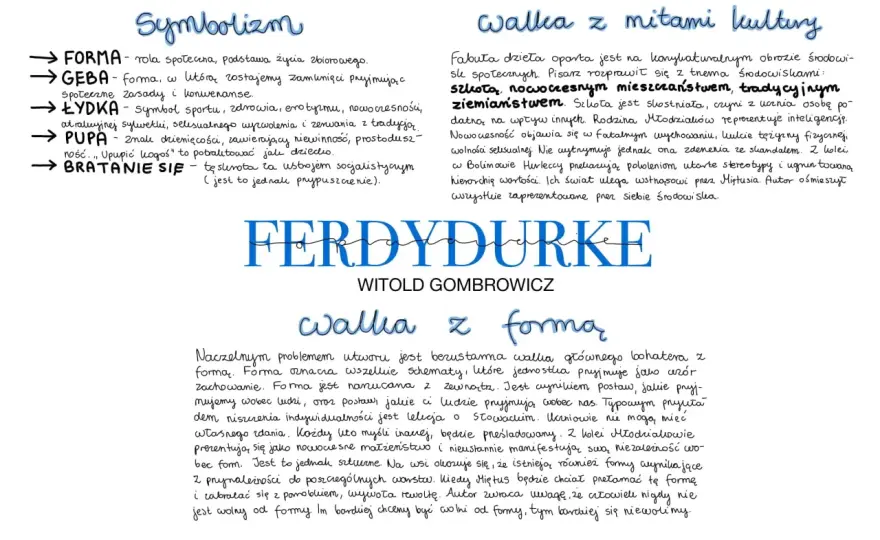 Symbolizm
→ FORMA - rola społeczna, podstawa życia zbiorowego.
→ GĘBA - forma, w którą zostajemy zamknięci przyjmując
społeczne zasady i konwenanse.
→ ŁYDKA - symbol sportu, zdrowia, erotyzmu, nowoczesności,
atrakcyjnej sylwetki, seksualnego wyzwolenia i zerwania z tradycją.
→ PUPA - znak dziecięcości, zawierający niewinność, prostodusz-
ność. „Upupić kogoś" to potraktować jak dziecko.
→ BRATANIE SIĘ - tęsknota za ustrojem socjalistycznym
(jest to jednak przypuszczenie).
walka z mitami kultury
Fabuła dzieła oparta jest na karykaturalnym obrazie środowi-
sk społecznych. Pisarz rozprawił się z trzema środowiskami:
szkołą, nowoczesnym mieszczaństwem, tradycyjnym
ziemiaństwem. Szkoła jest skostniała, czyni z ucznia osobę po-
datną na wpływ innych. Rodzina Młodziaków reprezentuje inteligencję.
Nowoczesność objawia się w fatalnym wychowaniu, kulcie tężyzny fizycznej,
wolności seksualnej. Nie wytrzymuje jednak ona zderzenia ze skandalem. Z kolei
w Bolimowie Hurleccy przekazują pokoleniom utarte stereotypy i ugruntowaną
hierarchię wartości. Ich świat ulega wstrząsowi przez Miętusa. Autor ośmieszył
wszystkie zaprezentowane przez siebie środowiska.
FERDYDURKE
opracowanie
WITOLD GOMBROWICZ
walka z formą
Naczelnym problemem utworu jest bezustanna walka głównego bohatera z
formą. Forma oznacza wszelkie schematy, które jednostka przyjmuje jako wzór
zachowanie. Forma jest narzucana z zewnątrz. Jest wynikiem postaw, jakie przyj-
mujemy wobec ludzi, oraz postaw jakie ci ludzie przyjmują wobec nas. Typowym przykła-
dem niszczenia indywidualności jest lekcja o Słowackim. Uczniowie nie mogą mieć
własnego zdania. Każdy kto myśli inaczej, będzie prześladowany. Z kolei Młodziakowie
prezentują się jako nowoczesne małżeństwo i nieustannie manifestują swą niezależność wo-
bec form. Jest to jednak sztuczne. Na wsi okazuje się, że istnieją również formy wynikające
z przynależności do poszczególnych warstw. Kiedy Miętus będzie chciał przełamać tę formę
i zabratać się z parobkiem, wywoła rewoltę. Autor zwraca uwagę, że człowiek nigdy nie
jest wolny od formy. Im bardziej chcemy być wolni od formy, tym bardziej się niewolimy.